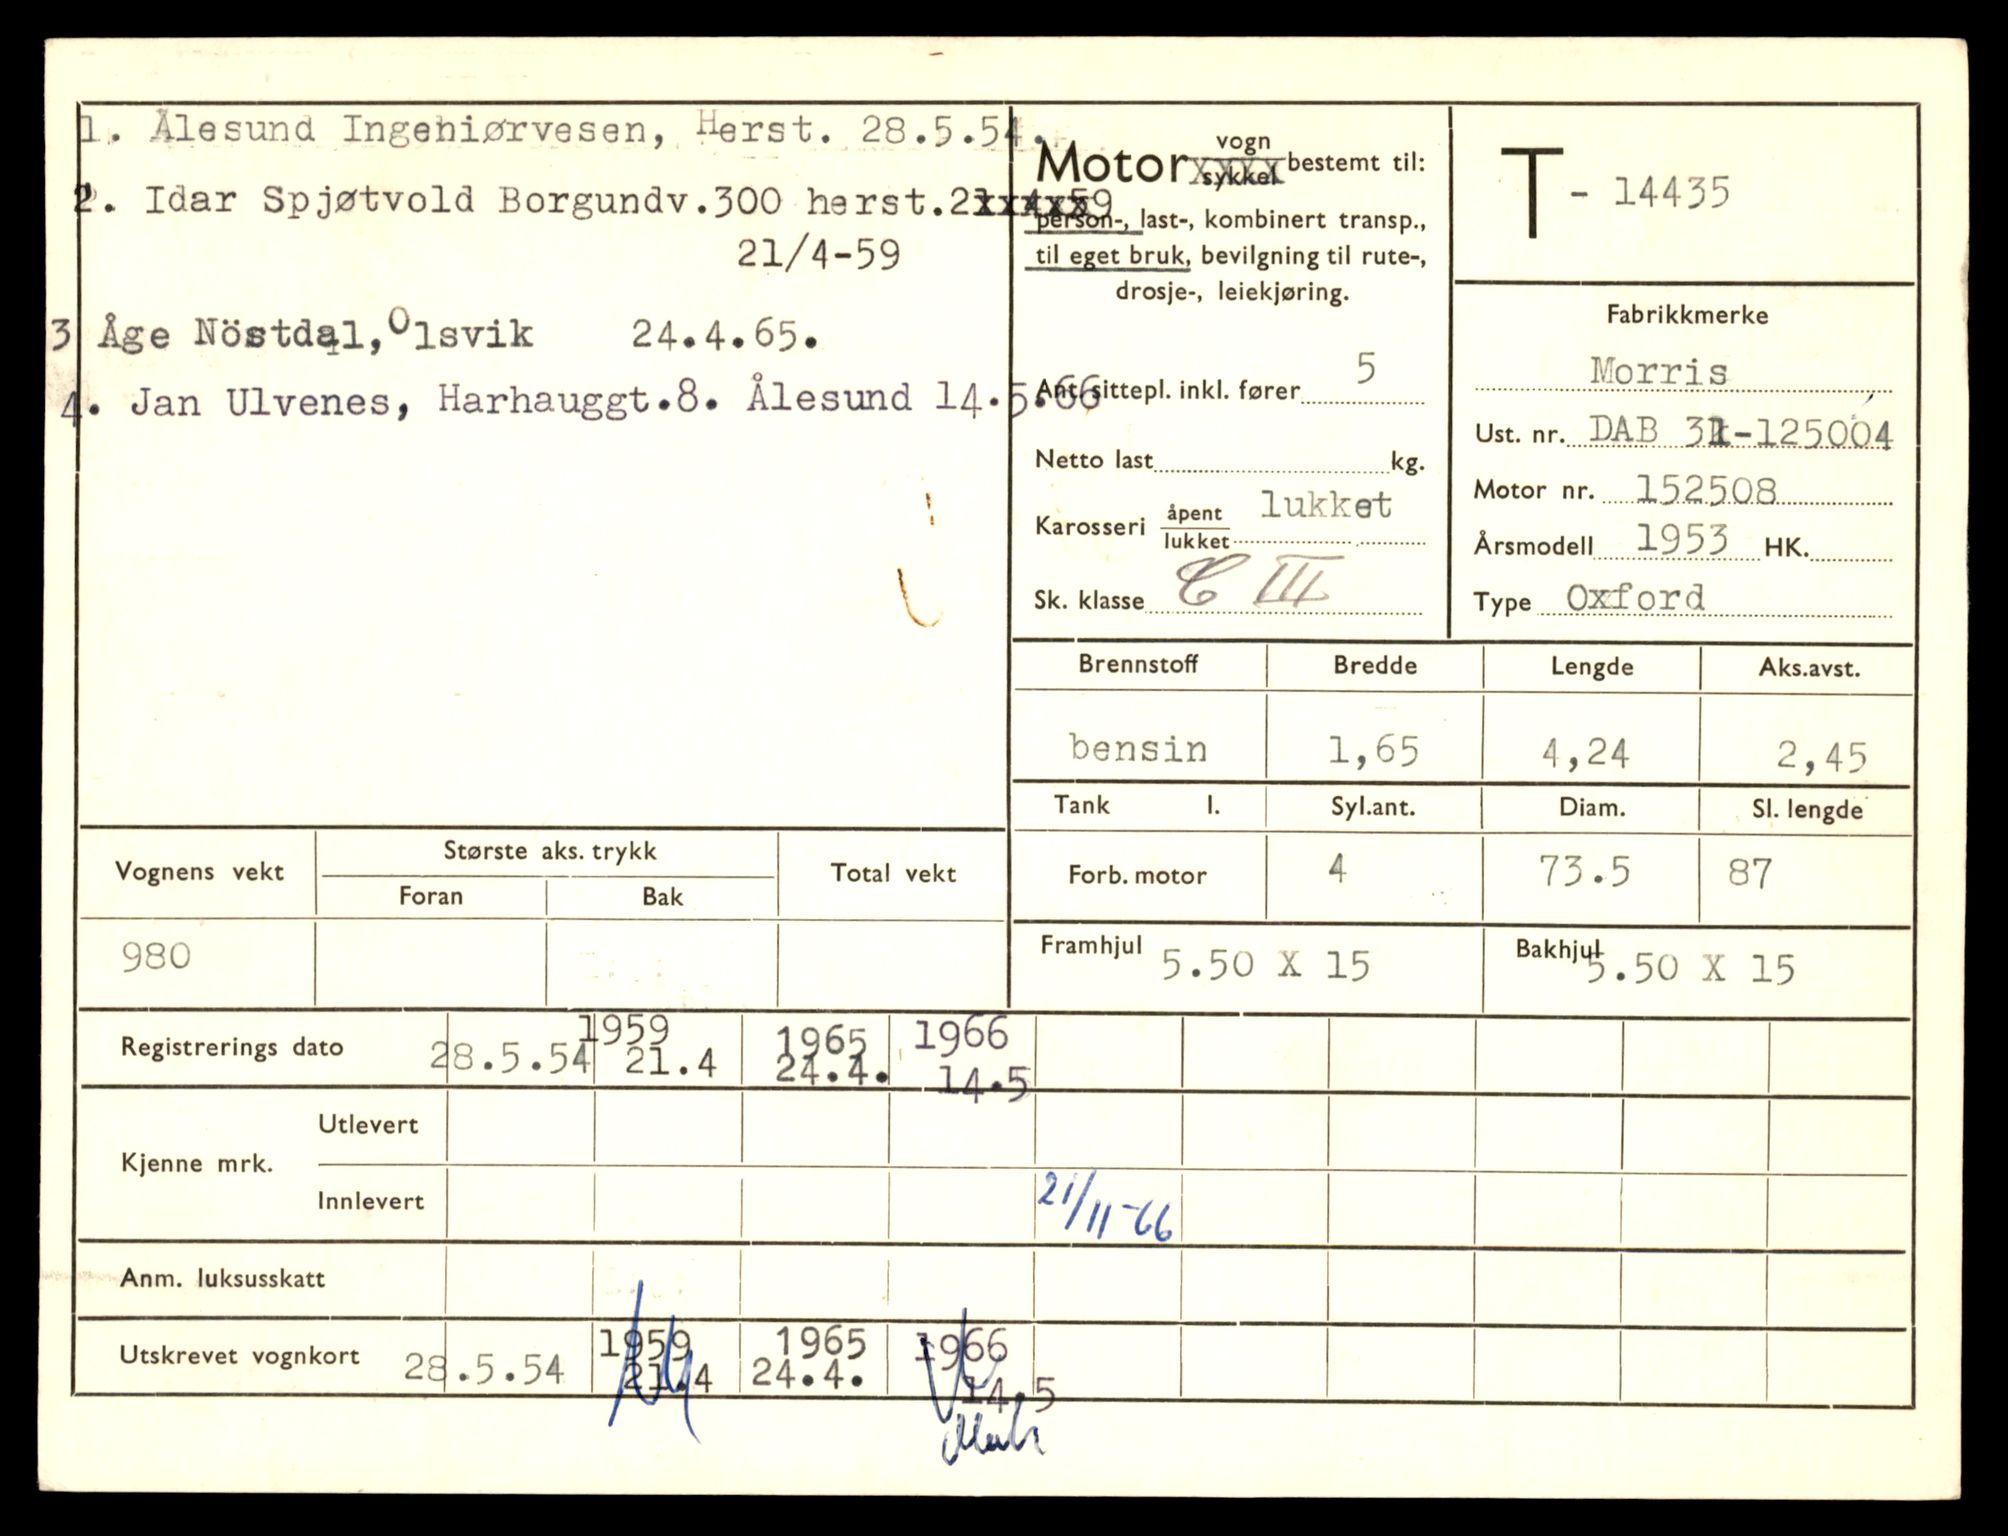 1. Ålesund Ingehiørvesen, Herst. 28.5.54.
2. Idar Spjøtvold Borgundv.300 herst.21x4x59
21/4-59
3 Åge Nöstdal, Olsvik 24.4.65.
4. Jan Ulvenes, Harhauggt.8. Ålesund 14.5.66
Motor vogn
sykkel bestemt til:
person-, last-, kombinert transp.,
til eget bruk, bevilgning til rute-,
drosje-, leiekjøring.
Ant. sittepl. inkl. fører 5
Netto last kg.
Karosseri åpent
lukket lukket
Sk. klasse C III
T - 14435
Fabrikkmerke
Morris
Ust. nr. DAB 31-125004
Motor nr. 152508
Årsmodell 1953 HK.
Type Oxford
Brennstoff Bredde Lengde Aks.avst.
bensin 1,65 4,24 2,45
Tank l. Syl.ant. Diam. Sl. lengde
Forb. motor 4 73.5 87
Framhjul 5.50 X 15 Bakhjul 5.50 X 15
Vognens vekt Største aks. trykk Total vekt
Foran Bak
980
Registrerings dato 28.5.54 1959 21.4 1965 24.4. 1966 14.5
Kjenne mrk.
Utlevert
Innlevert 21/11-66
Anm. luksusskatt
Utskrevet vognkort 28.5.54 1959 21.4 1965 24.4. 1966 14.5